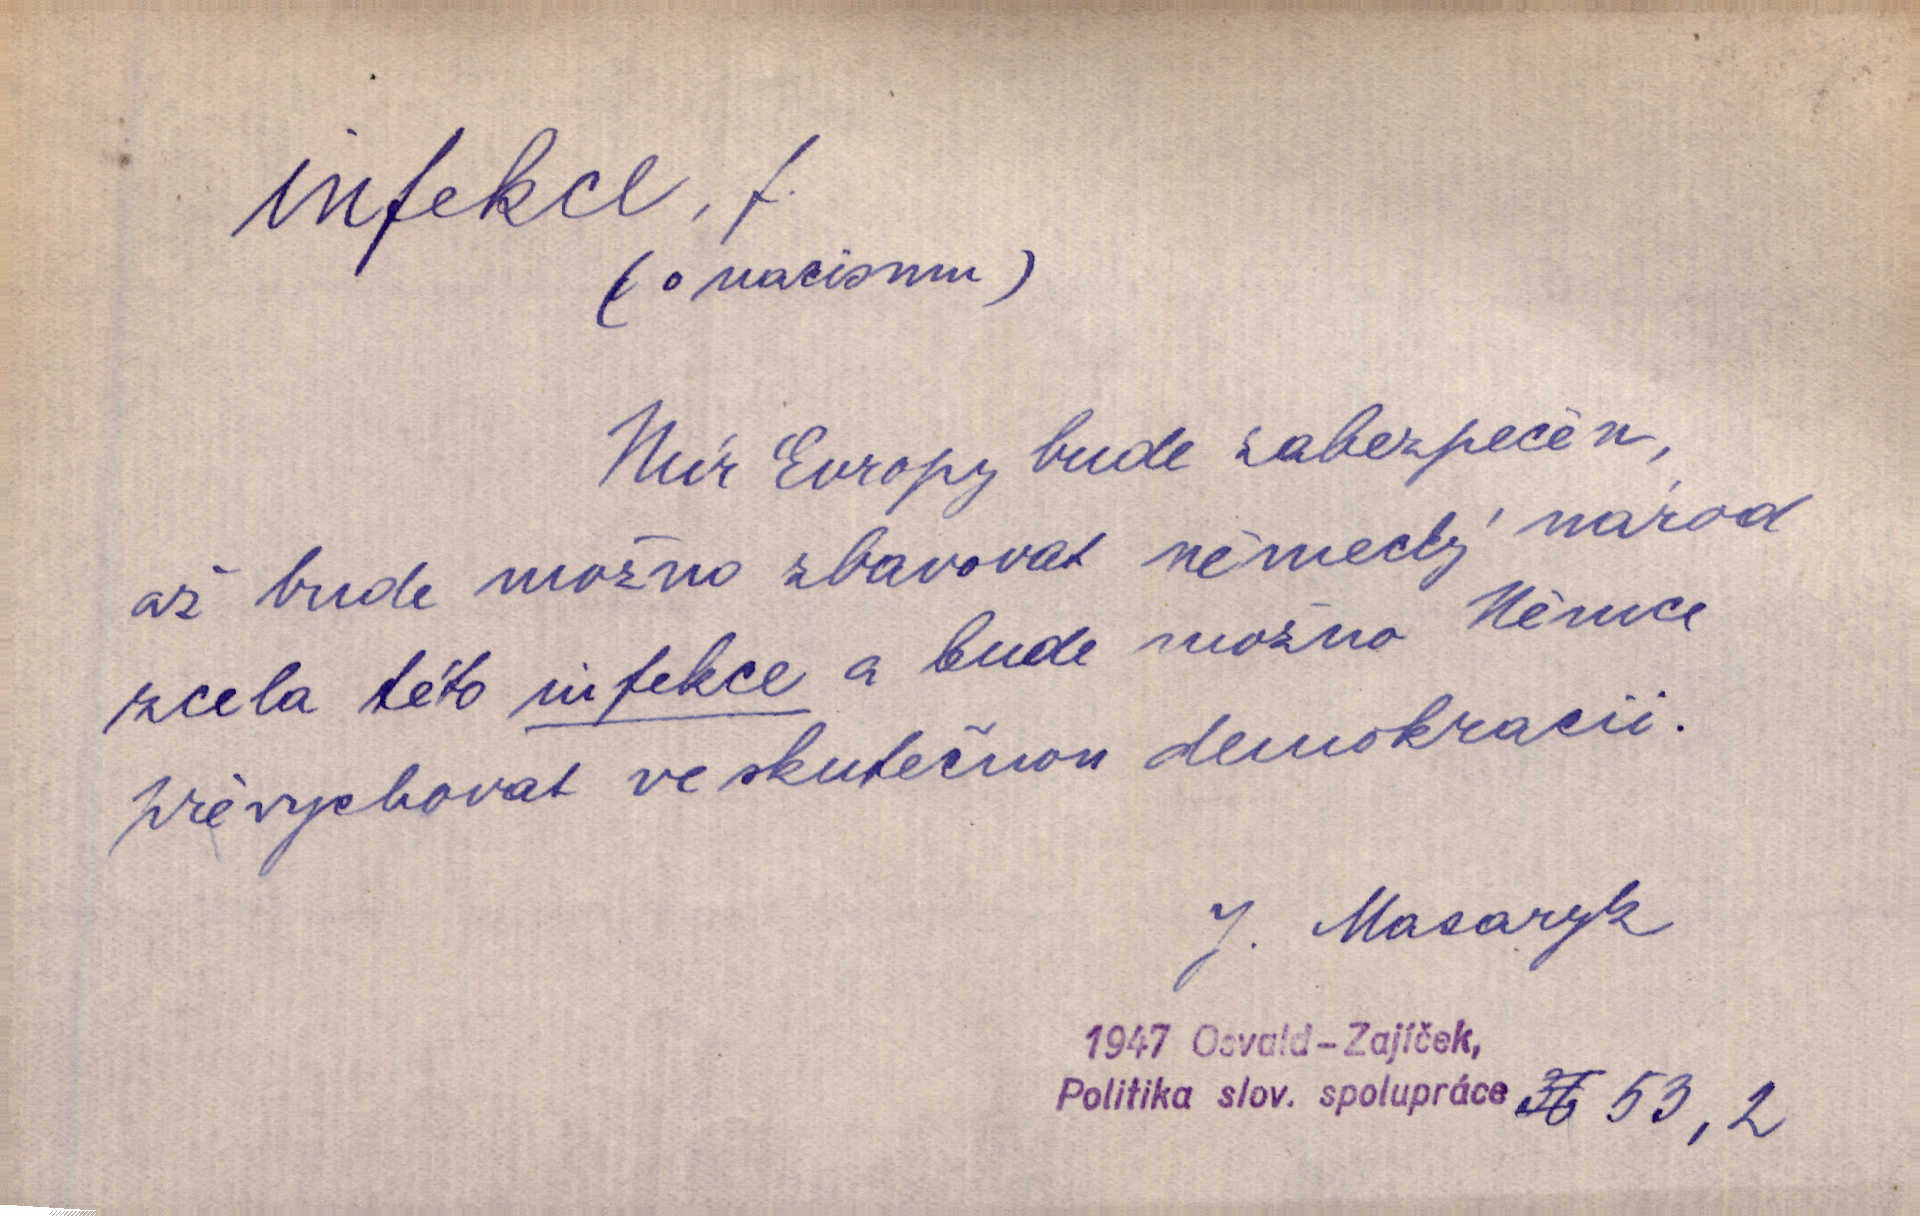 infekce, f.
(o nacismu)
Mír Evropy bude zabezpečen,
až bude možno zbavovat německý národ
zcela této infekce a bude možno Němce
převychovat ve skutečnou demokracii.
J. Masaryk
1947 Osvald-Zajíček,
Politika slov. spolupráce 53, 2